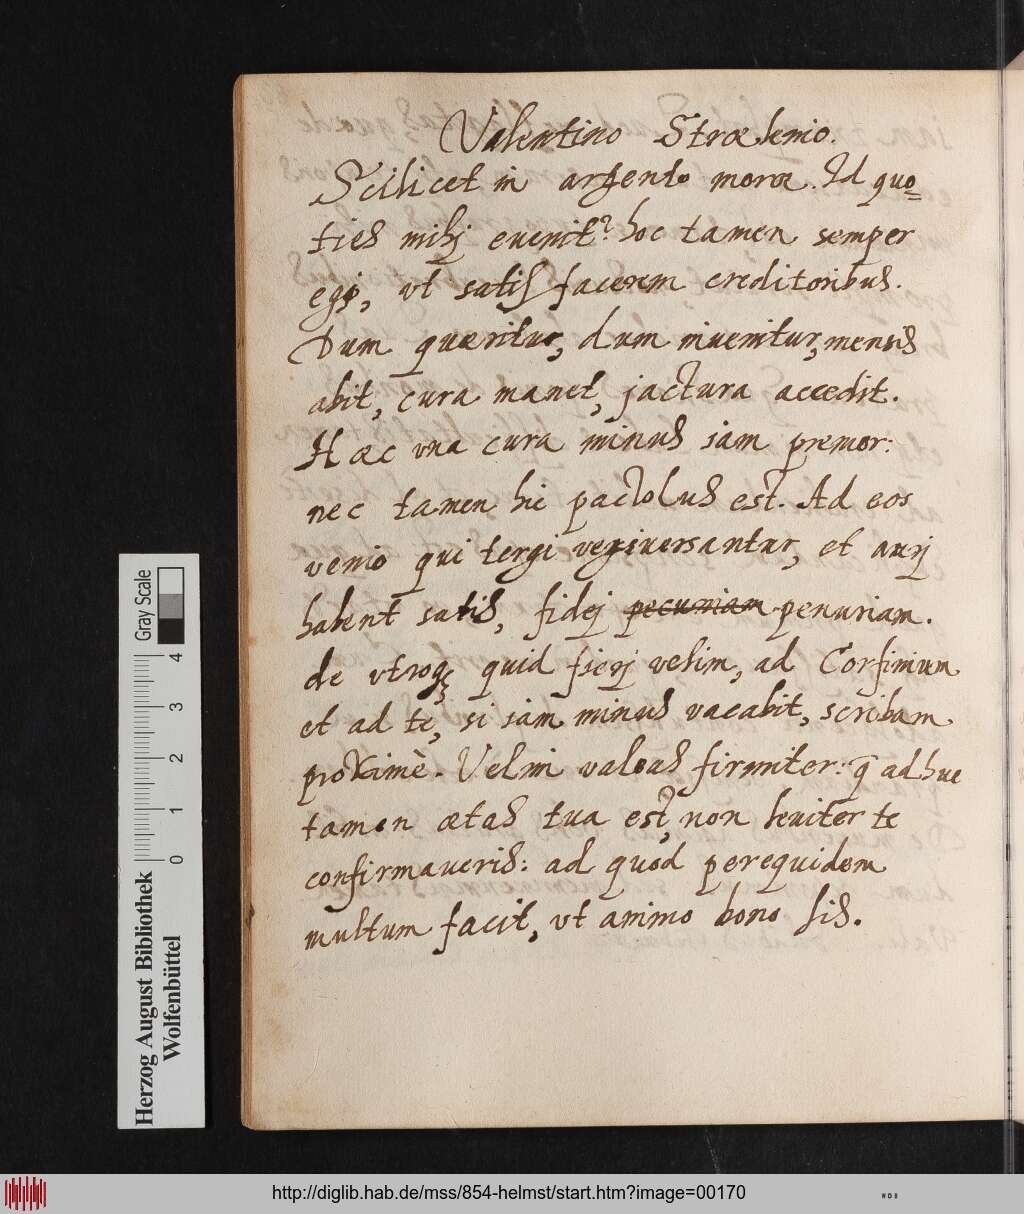 Valentino Strælenio.
Scilicet in argento moræ. Id quo=
ties mihj euenit? hoc tamen semper
egi, vt satisfacerem creditoribus.
Dum quæritur, dum inuenitur, mensis
abit, cura manet, jactura accedit.
Hæc vna cura minus iam premor:
nec tamen hic pactolus est. Ad eos
venio qui tergiversantur, et aurj
habent satis, fidej pecuniam penuriam.
de vtroq; quid fierj velim, ad Corfinium
et ad te, si iam minus vacabit, scribam
proximè. Velim valeas firmiter: q̄ adhuc
tamen ætas tua est, non leuiter te
confirmaveris: ad quod perequidem
multum facit, vt animo bono sis.
Herzog August Bibliothek
Wolfenbüttel
Gray Scale
0 1 2 3 4
http://diglib.hab.de/mss/854-helmst/start.htm?image=00170
WDB